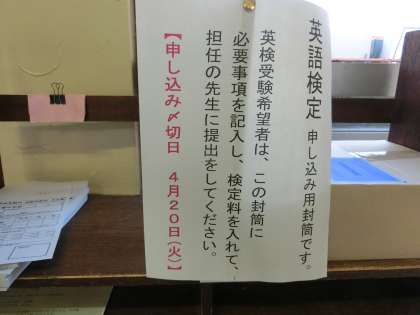 英語検定 申し込み用封筒です。
英検受験希望者は、この封筒に
必要事項を記入し、検定料を入れて、
担任の先生に提出をしてください。
【申し込み〆切日 4月20日(火)】